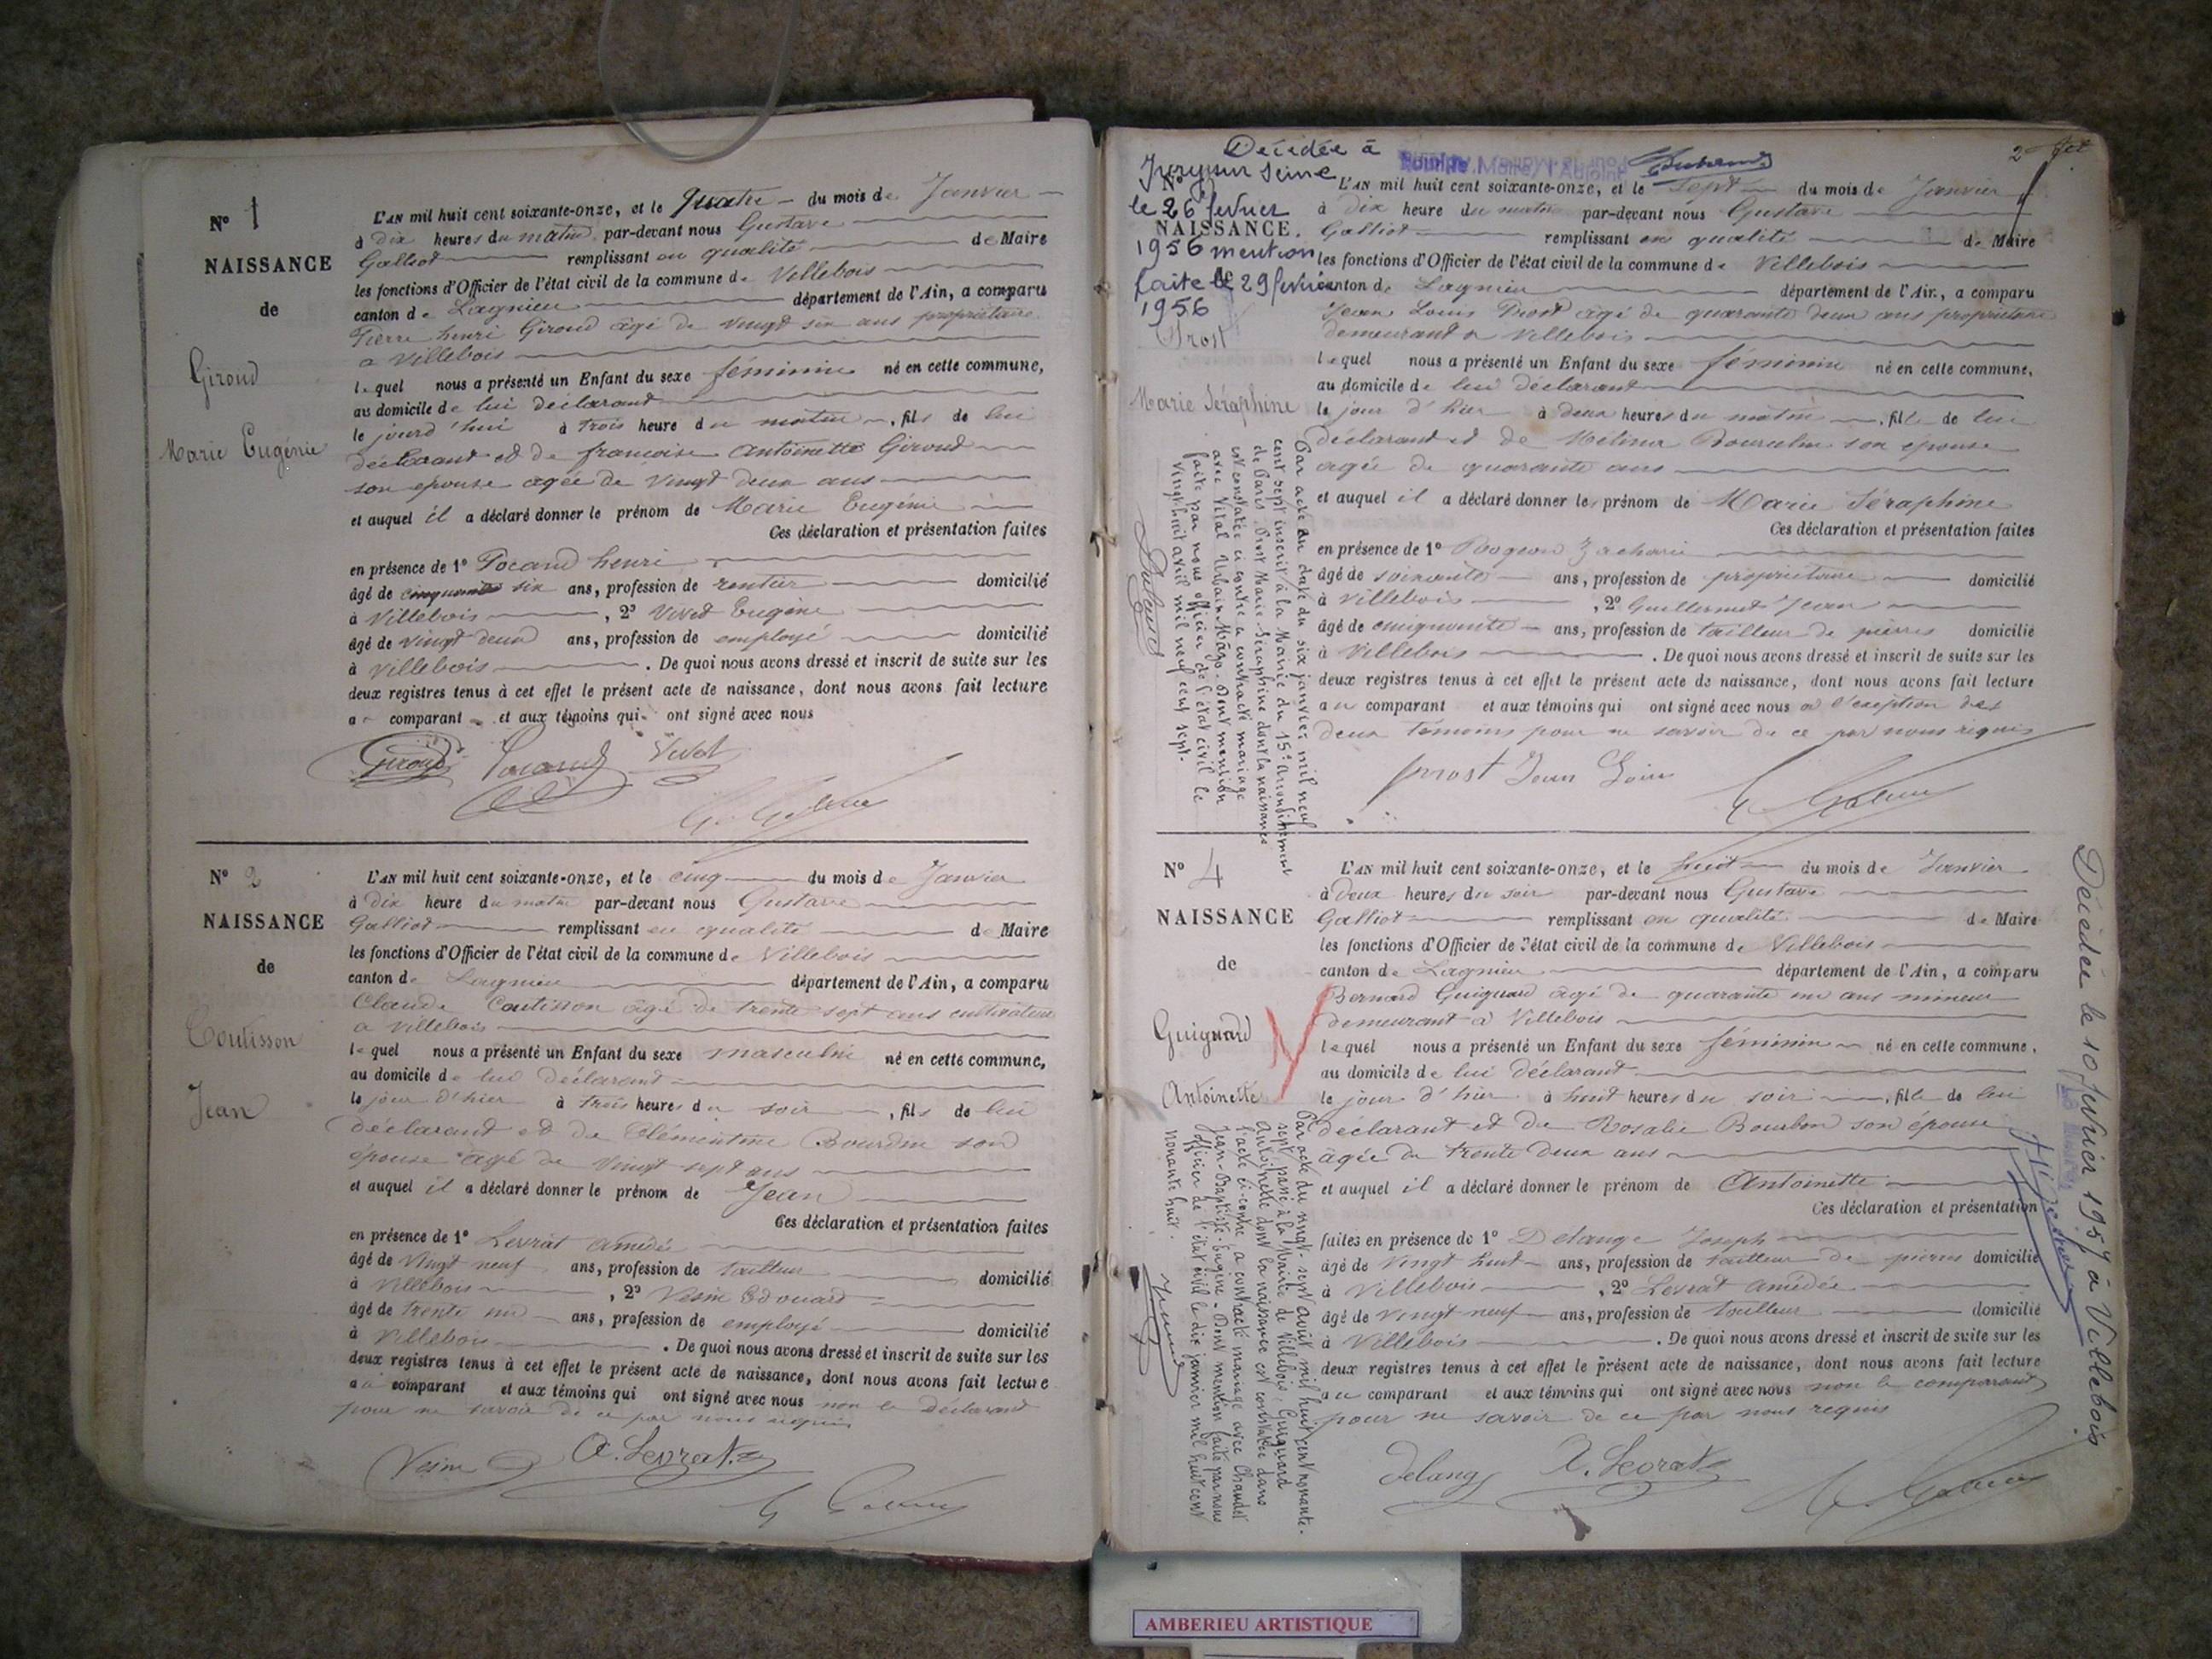 N° 1
NAISSANCE
de
Giroud
Marie Eugénie
L'AN mil huit cent soixante-onze, et le Quatre du mois de Janvier
à dix heures du matin par-devant nous Gustave
Galliot remplissant en qualité de Maire
les fonctions d'Officier de l'état civil de la commune de Villebois
canton de Lagnieu département de l'Ain, a comparu
Pierre henri Giroud âgé de vingt six ans propriétaire
a Villebois
lequel nous a présenté un Enfant du sexe féminin né en cette commune,
au domicile de lui déclarant
le jourd'hui à trois heure du matin, fils de lui
déclarant et de francoise Antoinette Giroud
son epouse agée de vingt deux ans
et auquel il a déclaré donner le prénom de Marie Eugénie
Ces déclaration et présentation faites
en présence de 1° Pocand henri
âgé de cinquante six ans, profession de rentier domicilié
à Villebois, 2° Vivet Eugène
âgé de vingt deux ans, profession de employé domicilié
à Villebois. De quoi nous avons dressé et inscrit de suite sur les
deux registres tenus à cet effet le présent acte de naissance, dont nous avons fait lecture
a comparant et aux témoins qui ont signé avec nous
Giroud Pocand Vivet
N° 2
NAISSANCE
de
Coutisson
Jean
L'AN mil huit cent soixante-onze, et le cinq du mois de Janvier
à dix heure du matin par-devant nous Gustave
Galliot remplissant en qualité de Maire
les fonctions d'Officier de l'état civil de la commune de Villebois
canton de Lagnieu département de l'Ain, a comparu
Claude Coutisson âgé de trente sept ans cultivateur
a Villebois
lequel nous a présenté un Enfant du sexe masculin né en cette commune,
au domicile de lui déclarant
le jour d'hier à trois heures du soir, fils de lui
déclarant et de Clémentine Bourdin son
épouse agé de vingt sept ans
et auquel il a déclaré donner le prénom de Jean
Ces déclaration et présentation faites
en présence de 1° Levrat Amédée
âgé de vingt neuf ans, profession de tailleur domicilié
à Villebois, 2° Vesin Edouard
âgé de trente un ans, profession de employé domicilié
à Villebois. De quoi nous avons dressé et inscrit de suite sur les
deux registres tenus à cet effet le présent acte de naissance, dont nous avons fait lecture
au comparant et aux témoins qui ont signé avec nous non le Déclarant
pour ne savoir de ce par nous requis
Vesin A. Levrat
2
Décédée à
Ivry sur Seine
le 26 fevrier
1956 mention
faite le 29 fevrier
1956
N°
NAISSANCE.
Prost
Marie Séraphine
L'AN mil huit cent soixante-onze, et le sept du mois de Janvier
à dix heure du matin par-devant nous Gustave
Galliot remplissant en qualité de Maire
les fonctions d'Officier de l'état civil de la commune de Villebois
canton de Lagnieu département de l'Ain, a comparu
Jean Louis Prost âgé de quarante deux ans propriétaire
demeurant a Villebois
lequel nous a présenté un Enfant du sexe féminin né en cette commune,
au domicile de lui déclarant
le jour d'hier à deux heures du matin, fille de lui
déclarant et de Mélina Bourdin son epouse
agée de quarante ans
et auquel il a déclaré donner les prénom de Marie Séraphine
Ces déclaration et présentation faites
en présence de 1° Zacharie
âgé de soixante ans, profession de propriétaire domicilié
à Villebois, 2° Guillermet Jean
âgé de cinquante ans, profession de tailleur de pierres domicilié
à Villebois. De quoi nous avons dressé et inscrit de suite sur les
deux registres tenus à cet effet le présent acte de naissance, dont nous avons fait lecture
au comparant et aux témoins qui ont signé avec nous a l'exception des
deux témoins pour ne savoir de ce par nous requis
prost Jean Loüis
Par acte en date du six janvier mil neuf
cent sept inscrit à la Mairie du 15e arrondissement
de Paris, Prost Marie-Séraphine dont la naissance
est constatée ci-contre a contracté mariage
avec Vital Urbain Mage. Dont mention
faite par nous officier de l'état civil le
vingt huit avril mil neuf cent sept.
N° 4
NAISSANCE
de
Guignard
Antoinette
L'AN mil huit cent soixante-onze, et le huit du mois de Janvier
à Deux heures du soir par-devant nous Gustave
Galliot remplissant en qualité de Maire
les fonctions d'Officier de l'état civil de la commune de Villebois
canton de Lagnieu département de l'Ain, a comparu
Bernard Guignard âgé de quarante un ans mineur
demeurant à Villebois
lequel nous a présenté un Enfant du sexe féminin né en cette commune,
au domicile de lui déclarant
le jour d'hier à huit heures du soir, fille de lui
déclarant et de Rosalie Bourbon son épouse
âgée de trente deux ans
et auquel il a déclaré donner le prénom de Antoinette
Ces déclaration et présentation
faites en présence de 1° Delange Joseph
âgé de vingt huit ans, profession de tailleur de pierres domicilié
à Villebois, 2° Levrat Amédée
âgé de vingt neuf ans, profession de tailleur domicilié
à Villebois. De quoi nous avons dressé et inscrit de suite sur les
deux registres tenus à cet effet le présent acte de naissance, dont nous avons fait lecture
au comparant et aux témoins qui ont signé avec nous non le comparant
pour ne savoir de ce par nous requis
Delange A. Levrat
Par acte du vingt-sept août mil huit cent nonante-
sept, passé à la Mairie de Villebois, Guignard
Antoinette dont la naissance est constatée dans
l'acte ci-contre a contracté mariage avec Chaudet
Jean-Baptiste-Eugène. Dont mention faite par nous
officier de l'état civil le dix janvier mil huit cent
nonante huit.
Décédée le 10 février 1957 à Villebois
AMBERIEU ARTISTIQUE